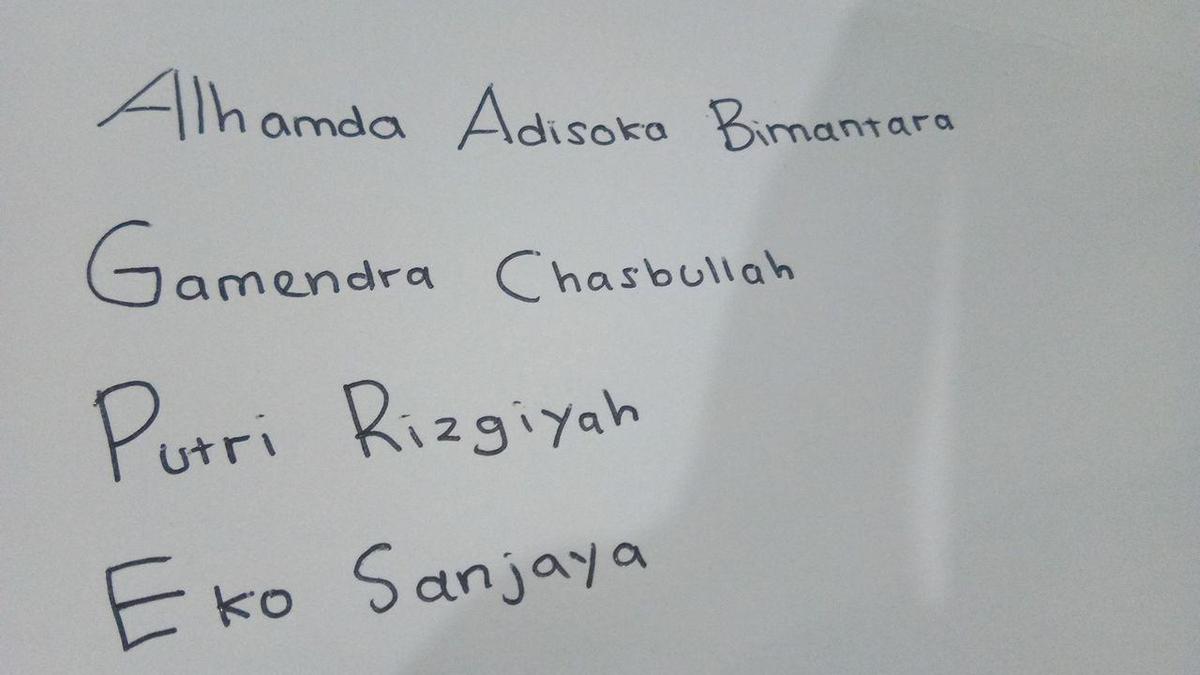 Alhamda Adisoka Bimantara
Gamendra Chasbullah
Putri Rizgiyah
Eko Sanjaya